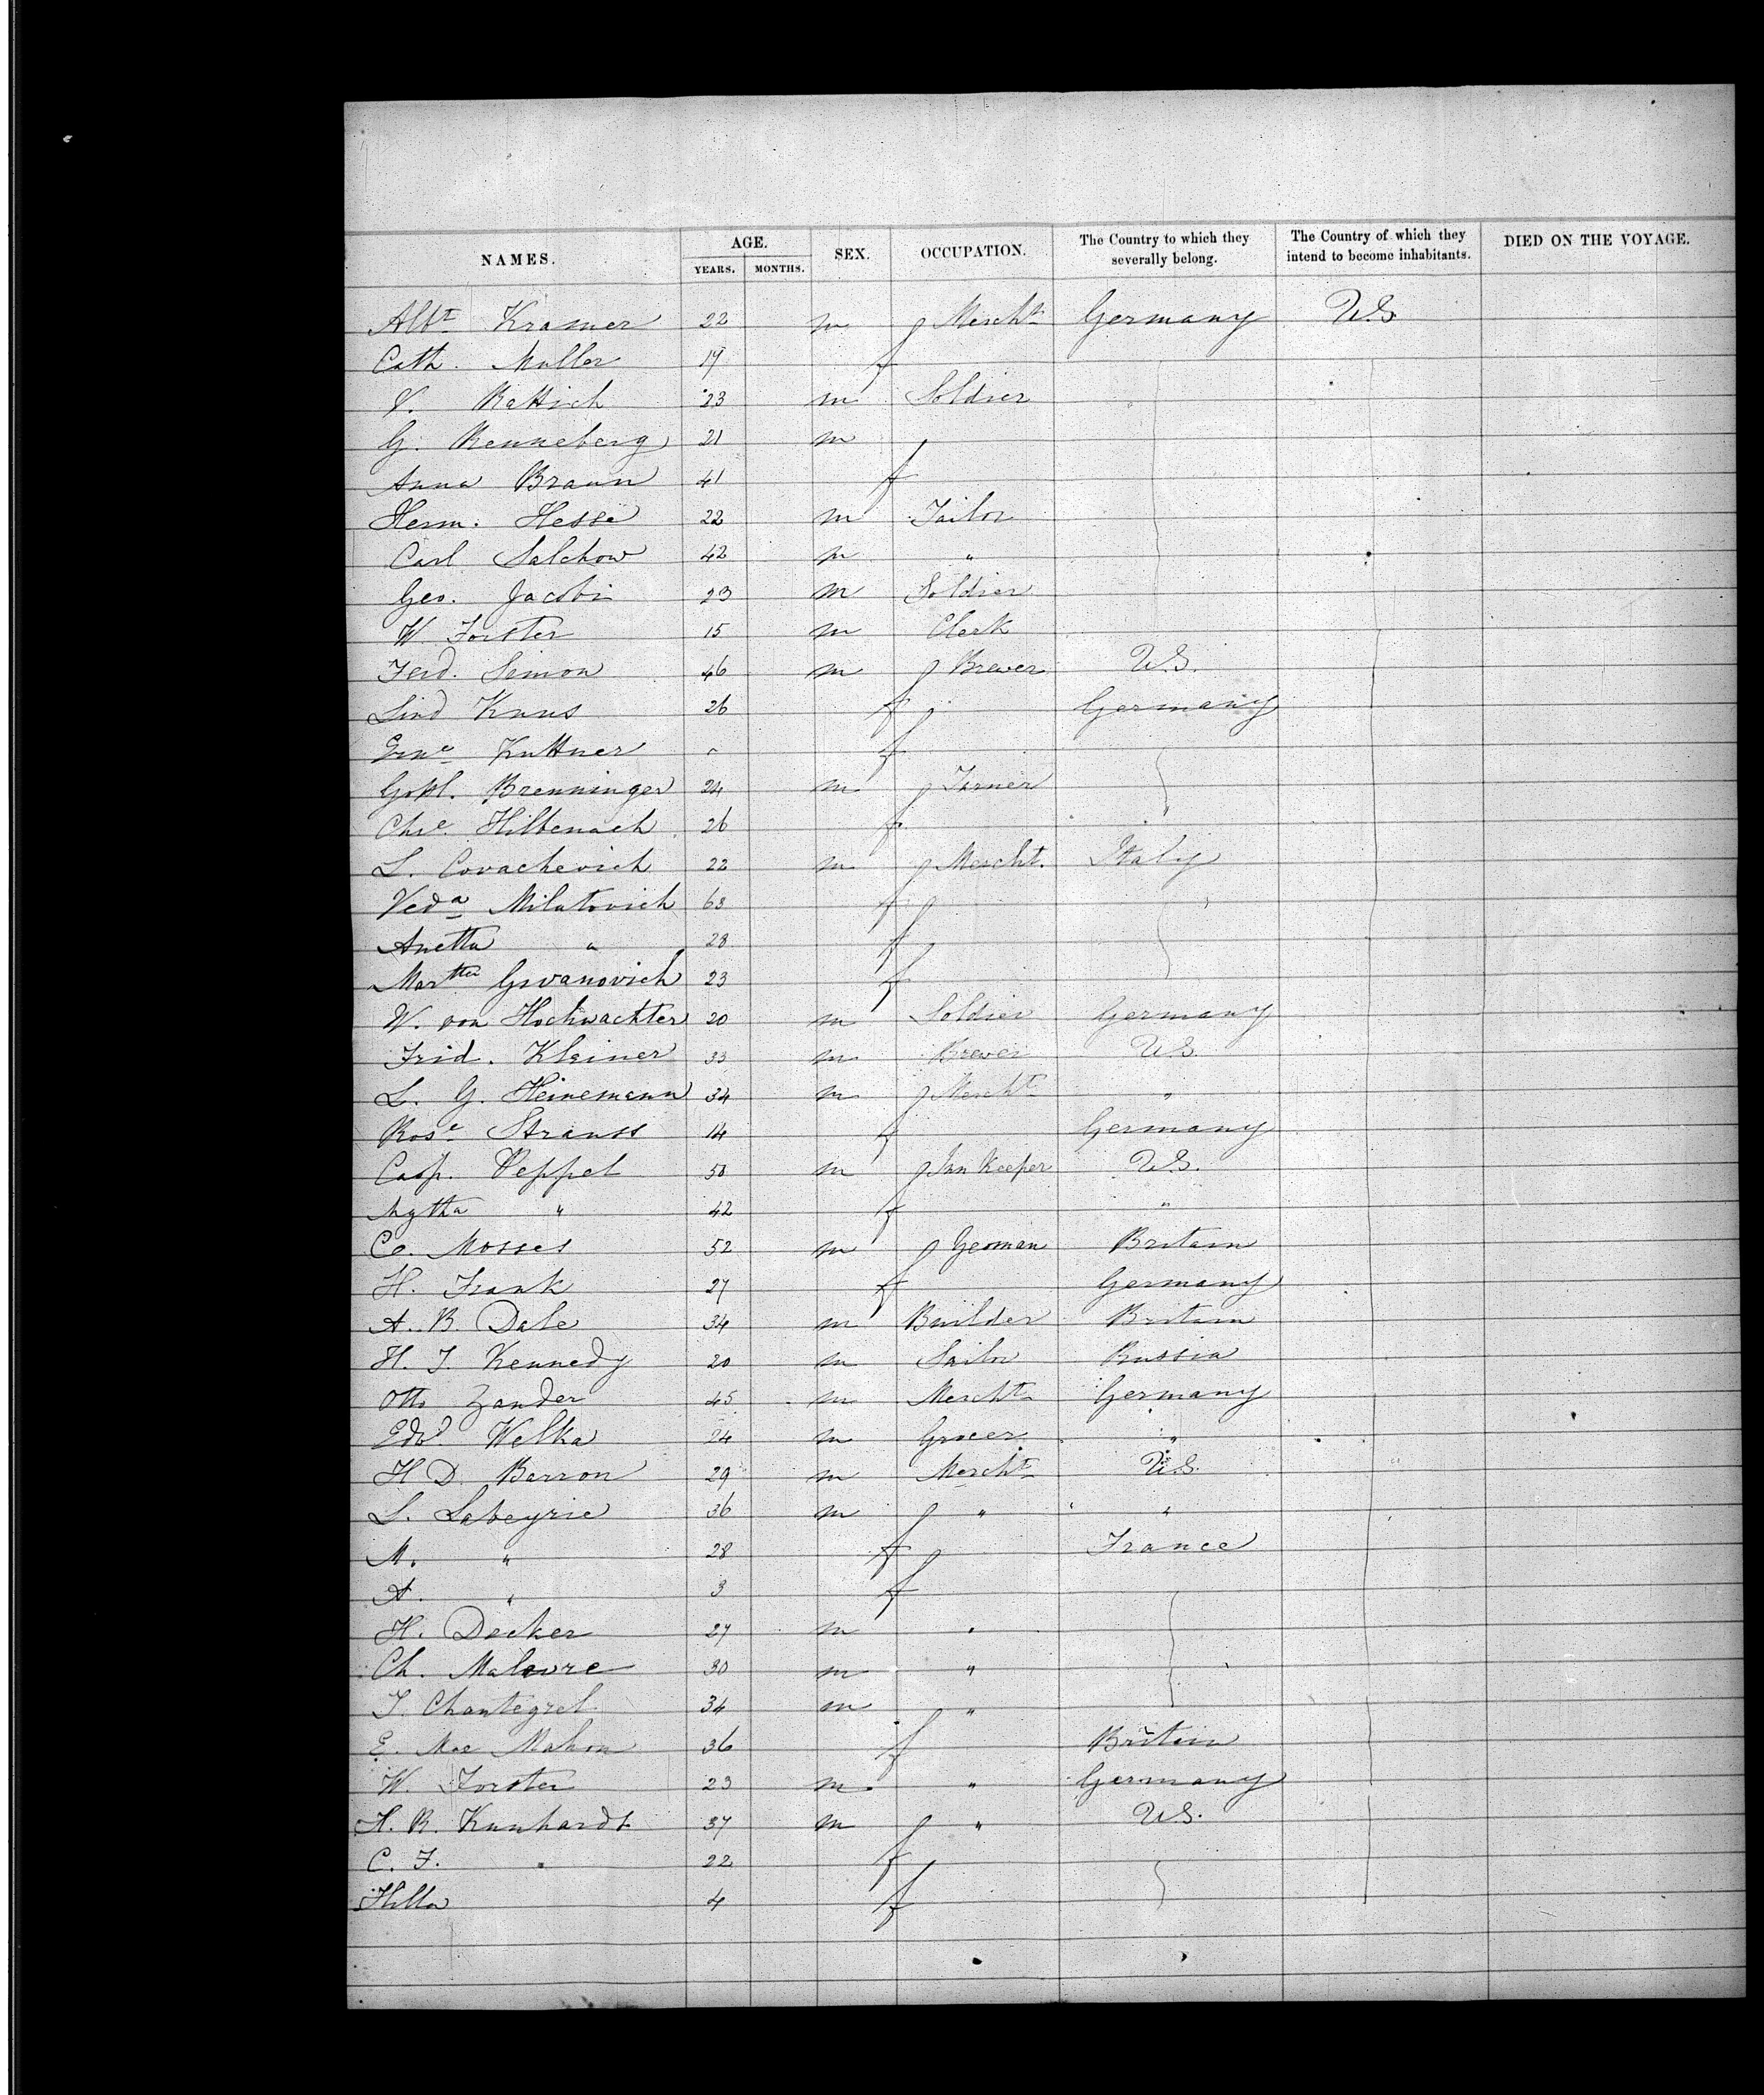 NAMES. AGE. YEARS. MONTHS. SEX. OCCUPATION. The Country to which they severally belong. The Country of which they intend to become inhabitants. DIED ON THE VOYAGE.
Albt Kramer 22 m Mercht Germany U.S.
Cath. Muller 19 f
V. Rattich 23 m Soldier
G. Renneberg 21 m
Anna Braun 41 f
Herm. Hesse 22 m Tailor
Carl Salchow 42 m "
Geo. Jacobi 23 m Soldier
W Forster 15 m Clerk
Ferd. Simon 46 m Brewer U.S.
Lind Knus 26 f Germany
Kuttner f
Gottl. Brenninger 24 m Turner
Chre Hilbenach 26 f "
L. Covachevich 22 m Mercht. Italy
Veda Milatovich 68 f
Anetta " 28 f
Martha Gwanovich 23 f
W. von Hochwachter 20 m Soldier Germany
Frid. Kleiner 33 m Brewer U.S.
L. G. Heinemann 34 m Mercht "
Rose Strauss 14 f Germany
Casp. Peppel 50 m Inn Keeper U.S.
Agtha " 42 f "
Co. Mosses 52 m Yeoman Britain
H. Frank 27 f Germany
A. B. Dale 34 m Builder Britain
H. J. Kennedy 20 m Sailor Russia
Otto Zander 45 m Mercht Germany
Edwd. Welka 24 m Grocer "
H D Barron 29 m Mercht U.S.
L. Labeyrie 36 m " "
M. " 28 f France
A. " 3 f
H. Decker 27 m "
Ch. Malevre 30 m "
J. Chantegrel 34 m "
E. Mac Mahon 36 f Britain
W. Forster 23 m " Germany
H. R. Kunhardt 37 m " U.S.
C. F. " 22 f
Hilla 4 f